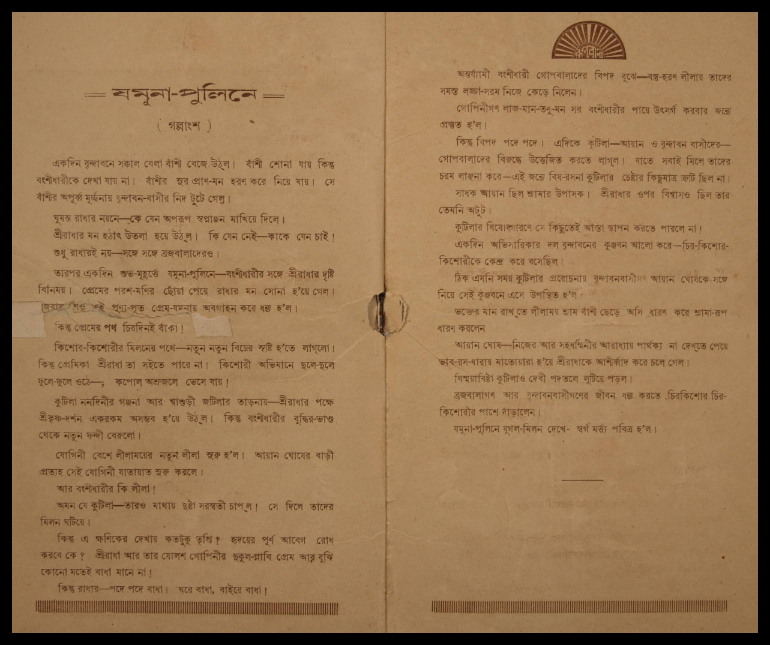 যমুনা-পুলিনে
( গল্পাংশ )
একদিন বৃন্দাবনে সকাল বেলা বাঁশী বেজে উঠ্ল। বাঁশী শোনা যায় কিন্তু
বংশীধারীকে দেখা যায় না। বাঁশীর স্বর প্রাণ-মন হরণ করে নিয়ে যায়। সে
বাঁশীর অপূর্ব্ব মূর্চ্ছনায় বৃন্দাবন-বাসীর নিদ টুটে গেল।
ঘুমন্ত রাধার নয়নে—কে যেন অপরূপ স্বপ্নাঞ্জন মাখিয়ে দিলে।
শ্রীরাধার মন হঠাৎ উতলা হয়ে উঠ্ল। কি যেন নেই—কাকে যেন চাই!
শুধু রাধারই নয়—সঙ্গে সঙ্গে ব্রজবালাদেরও।
তারপর একদিন শুভ-মুহূর্ত্তে যমুনা-পুলিনে—বংশীধারীর সঙ্গে শ্রীরাধার দৃষ্টি
বিনিময়। প্রেমের পরশ-মণির ছোঁয়া পেয়ে রাধার মন সোনা হ'য়ে গেল।
পুণ্য-পূত প্রেম-যমুনায় অবগাহন করে ধন্য হ'ল।
কিন্তু প্রেমের পথ চিরদিনই বাঁকা!
কিশোর-কিশোরীর মিলনের পথে—নতুন নতুন বিঘ্নের সৃষ্টি হ'তে লাগ্লো।
কিন্তু প্রেমিকা শ্রীরাধা তা সইতে পারে না। কিশোরী অভিমানে ফুলে-ফুলে
ফুলে-ফুলে ওঠে—, কপোল অশ্রুজলে ভেসে যায়!
কুটিলা ননদিনীর গঞ্জনা আর শ্বাশুড়ী জটিলার তাড়নায়—শ্রীরাধার পক্ষে
শ্রীকৃষ্ণ-দর্শন একরকম অসম্ভব হ'য়ে উঠ্ল। কিন্তু বংশীধারীর বুদ্ধির-ভাণ্ড
থেকে নতুন ফন্দী বেরুলো।
যোগিনী বেশে লীলাময়ের নতুন লীলা সুরু হ'ল। আয়ান ঘোষের বাড়ী
প্রত্যহ সেই যোগিনী যাতায়াত সুরু করলে।
আর বংশীধারীর কি লীলা!
অমন যে কুটিলা—তারও মাথায় দুষ্টা সরস্বতী চাপ্ল! সে দিলে তাদের
মিলন ঘটিয়ে।
কিন্তু এ ক্ষণিকের দেখায় কতটুকু তৃপ্তি? হৃদয়ের পূর্ণ আবেগ রোধ
করবে কে? শ্রীরাধা আর তার ষোলশ গোপিনীর দুকুল-প্লাবি প্রেম আর বুঝি
কোনো মতেই বাধা মানে না!
কিন্তু রাধার—পদে পদে বাধা। ঘরে বাধা, বাইরে বাধা!
অন্তর্য্যামী বংশীধারী গোপবালাদের বিপদ বুঝে—বস্ত্র-হরণ লীলায় তাদের
সমস্ত লজ্জা-সরম নিজে কেড়ে নিলেন।
গোপিনীগণ লাজ-মান-তনু-মন সব বংশীধারীর পায়ে উৎসর্গ করবার জন্যে
প্রস্তুত হ'ল।
কিন্তু বিপদ পদে পদে। এদিকে কুটিলা—আয়ান ও বৃন্দাবন বাসীদের—
গোপবালাদের বিরুদ্ধে উত্তেজিত করতে লাগ্ল। যাতে সবাই মিলে তাদের
চরম লাঞ্ছনা করে—এই জন্যে বিষ-রসনা কুটিলার চেষ্টার কিছুমাত্র ত্রুটি ছিল না।
সাধক আয়ান ছিল শ্যামার উপাসক। শ্রীরাধার ওপর বিশ্বাসও ছিল তার
তেমনি অটুট।
কুটিলার বিষোদ্গারণে সে কিছুতেই আস্থা স্থাপন করতে পারলে না!
একদিন অভিসারিকার দল বৃন্দাবনের কুঞ্জবন আলো করে—চির-কিশোর-
কিশোরীকে কেন্দ্র করে বসেছিল।
ঠিক এমনি সময় কুটিলার প্ররোচনায় বৃন্দাবনবাসীগণ আয়ান ঘোষকে সঙ্গে
নিয়ে সেই কুঞ্জবনে এসে উপস্থিত হ'ল।
ভক্তের মান রাখ্তে লীলাময় শ্যাম বাঁশী ছেড়ে অসি ধারণ করে শ্যামা-রূপ
ধারণ করলেন
আয়ান ঘোষ—নিজের আর সহধর্ম্মিনীর আরাধ্যায় পার্থক্য না দেখ্তে পেয়ে
ভাব-রস-ধারায় মাতোয়ারা হ'য়ে শ্রীরাধাকে আশীর্ব্বাদ করে চলে গেল।
বিস্ময়াবিষ্টা কুটিলাও দেবী পদতলে লুটিয়ে পড়ল।
ব্রজবালাগণ আর বৃন্দাবনবাসীগণের জীবন ধন্য করতে চিরকিশোর চির-
কিশোরীর পাশে দাঁড়ালেন।
যমুনা-পুলিনে যুগল-মিলন দেখে- স্বর্গ মর্ত্ত্য পবিত্র হ'ল।